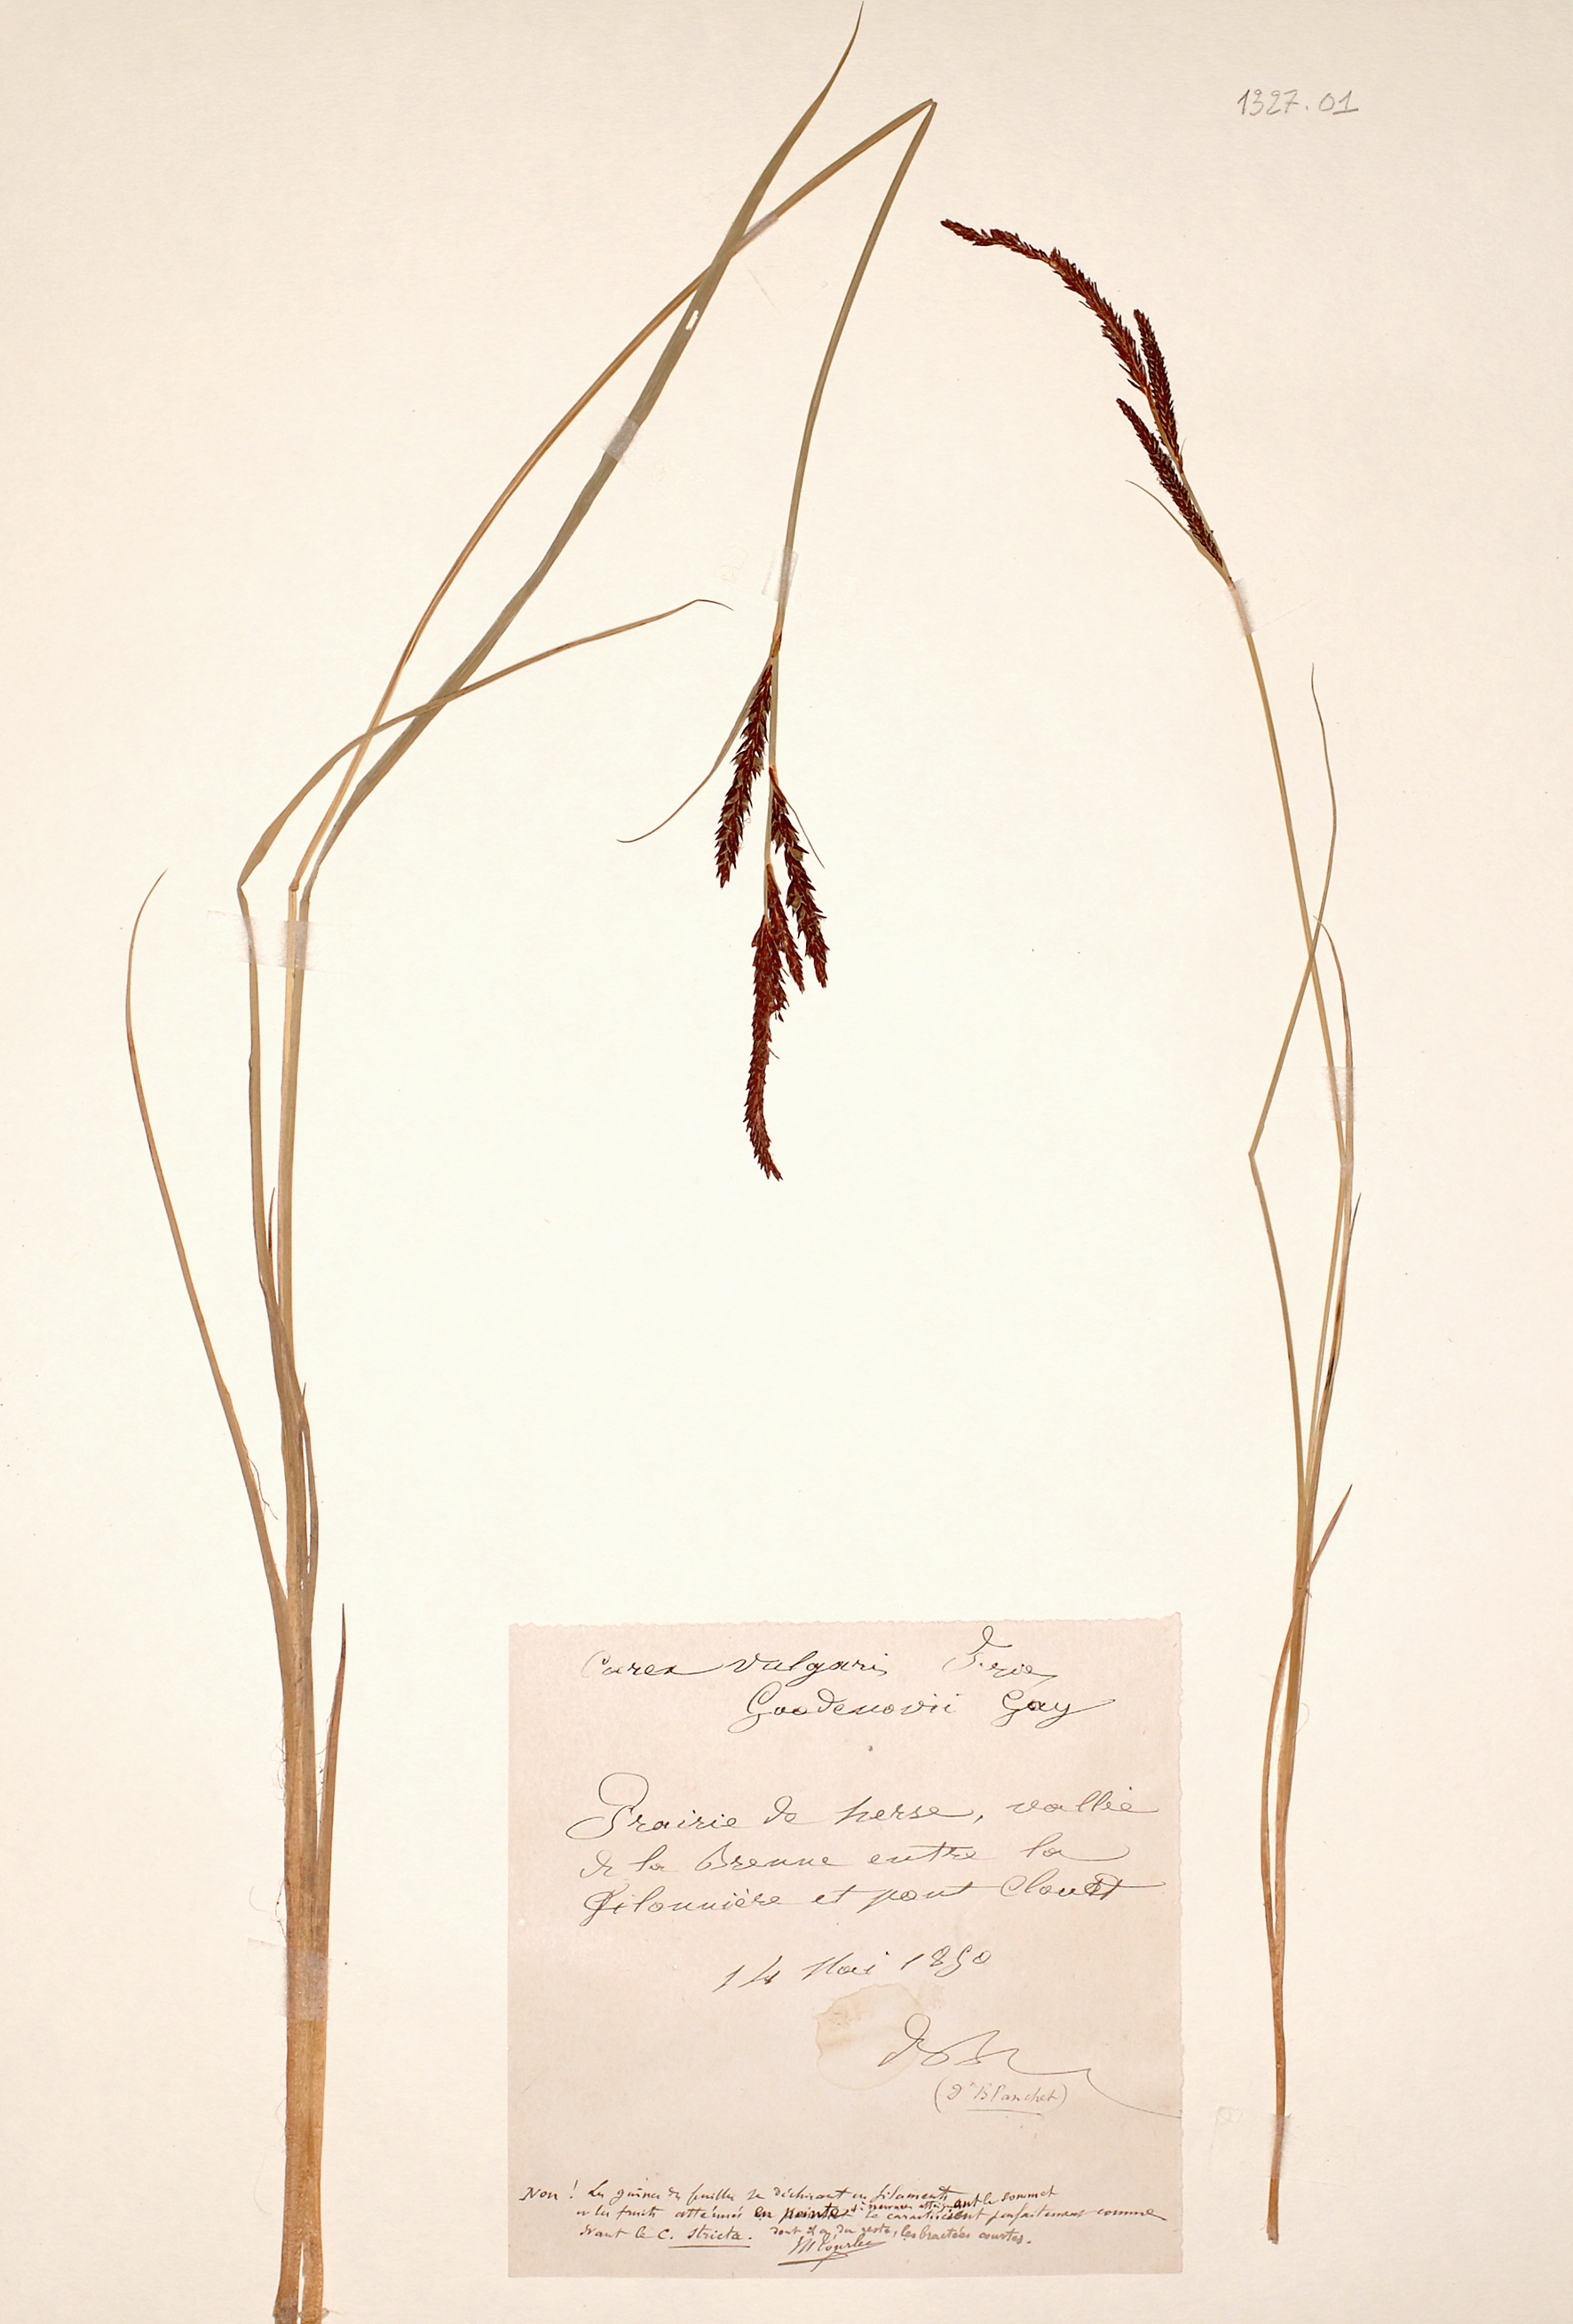 1327.01
Carex vulgaris Fries
Goodenovii Gay
Prairie de herse, vallée
de la Brenne entre la
Gilonnière et pont Clouet
14 Mai 1890
(Dr Blanchet)
Non ! Les gaines des feuilles se déchirant en filaments
et les fruits atténués en pointe et à nervures atteignant le sommet le caractérisent parfaitement comme
étant le C. stricta. dont il a, du reste, les bractées courtes.
M Tourlet